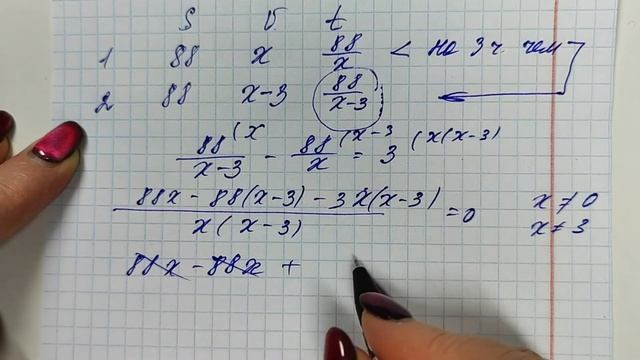 S V t
1 88 x 88/x < на 3 ч чем
2 88 x-3 88/(x-3)
88(x/(x-3) - 88(x-3/x = 3 (x(x-3)
(88x - 88(x-3) - 3x(x-3))/(x(x-3)) = 0 x ≠ 0
x ≠ 3
88x - 88x +